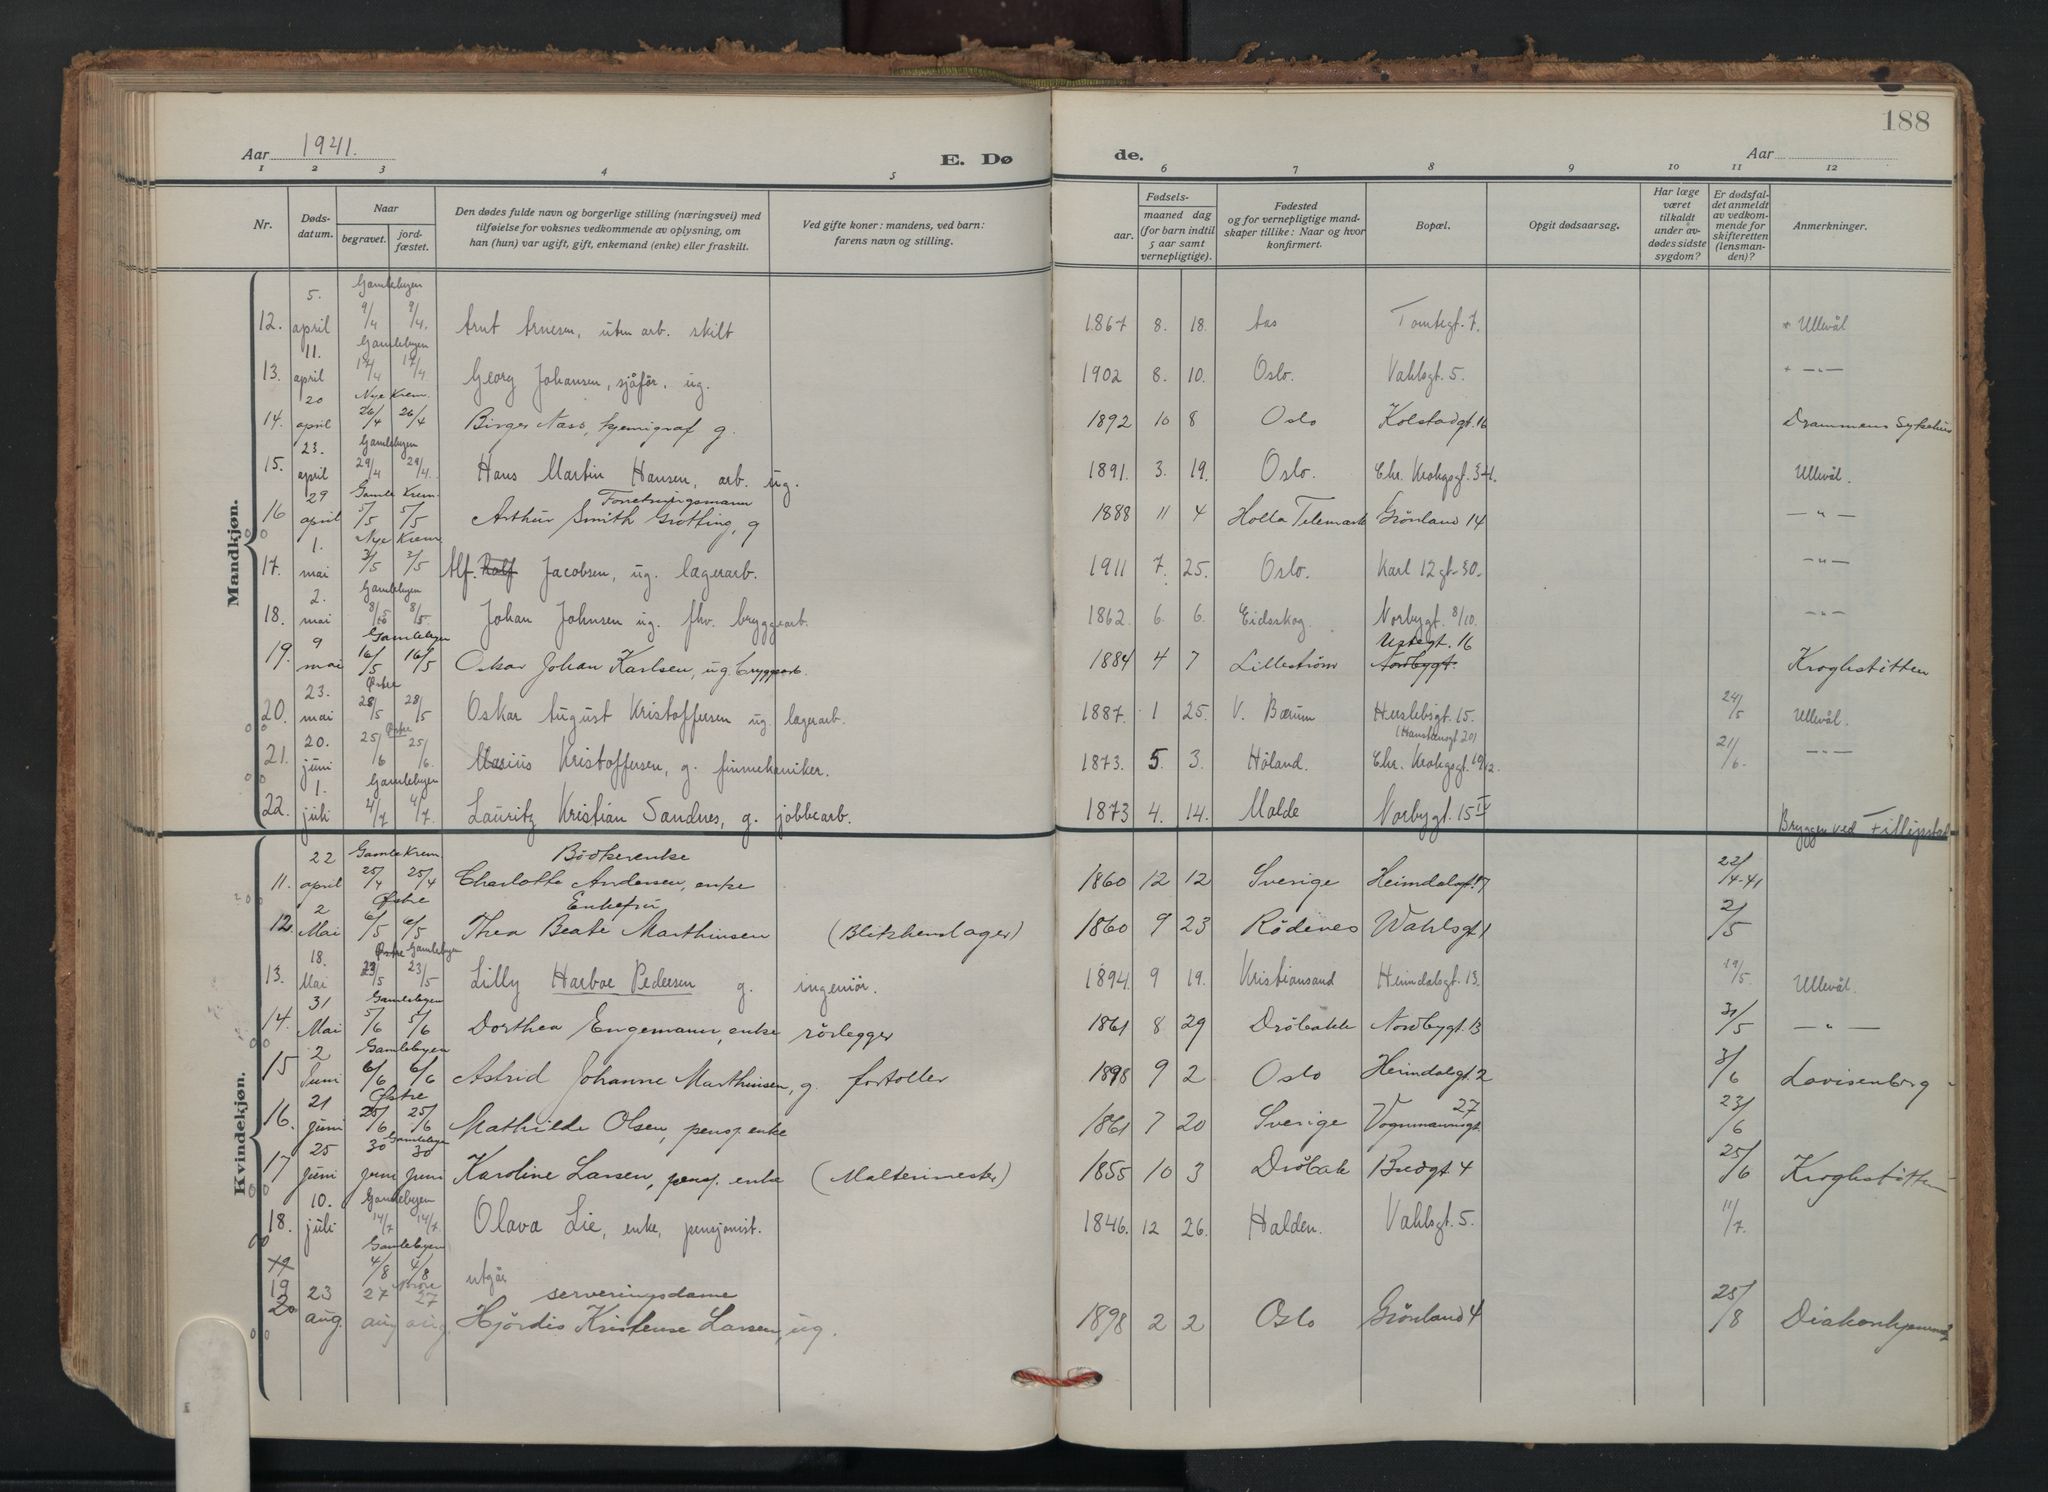 188
Aar 1941. E. Dø de. Aar
1 2 3 4 5 6 7 8 9 10 11 12
Nr. Døds-datum. Naar begravet. jord-fæstet. Den dødes fulde navn og borgerlige stilling (næringsvei) med tilføielse for voksnes vedkommende av oplysning, om han (hun) var ugift, gift, enkemand (enke) eller fraskilt. Ved gifte koner: mandens, ved barn: farens navn og stilling. Fødsels- aar. maaned dag (for barn indtil 5 aar samt vernepligtige). Fødested og for vernepligtige mand-skaper tillike: Naar og hvor konfirmert. Bopæl. Opgit dødsaarsag. Har læge været tilkaldt under av-dødes sidste sygdom? Er dødsfal-det anmeldt av vedkom-mende for skifteretten (lensman-den)? Anmerkninger.
Mandkjøn.
Gamlebyen
12. 5. april 9/4 9/4. Arnt Arnesen, uten arb. skilt 1867 8. 18. Aas Tomtegt. 7. + Ullevål
Gamlebyen
13. 11. april 17/4 17/4 Georg Johansen, sjåför, ug. 1902 8. 10. Oslo. Vahlsgt. 5. + —„—
Nye Krem.
14. 20 april 26/4 26/4 Birger Næss, kjemigraf g. 1892 10 8 Oslo Kolstadgt. 16 Drammens Sykehus
Gamlebyen
15. 23. april 29/4 29/4. Hans Martin Hansen, arb. ug. 1891. 3. 19. Oslo. Chr. Krohgsgt. 34. Ullevål.
Gamle Krem. Forretningsmann
16 29 april 5/5 5/5 Arthur Smith Grotting, g 1888 11 4 Holla Telemark Grønland 14 —„—
Nye Krem.
17. 1. mai 3/5 3/5 Alf. Rolf Jacobsen, ug. lagerarb. 1911 7. 25. Oslo. Karl 12 gt. 30. —„—
Gamlebyen
18. 2. mai 8/5 8/5 Johan Johnsen ug. fhv. bryggearb. 1862 6. 6. Eidsskog Norbygt. 8/10. —„—
Gamlebyen Urtegt. 16
19. 9 mai 16/5 16/5 Oskar Johan Karlsen, ug. bryggearb. 1884 4 7 Lillestrøm Nordbygt. Kroghstøtten
Østre
20. 23. mai 28/5 28/5 Oskar August Kristoffersen ug. lagerarb. 1887. 1 25. V. Bærum Herslebsgt. 15. 24/5 Ullevål.
Østre
21. 20. juni 25/6 25/6. Marius Kristoffersen, g. finmekaniker. 1873. 5. 3. Høland. Chr. Krohgsgt. 21/6. —„—
Gamlebyen
22. 1. juli 4/7 4/7. Lauritz Kristian Sandnes, g. jobbearb. 1873 4. 14. Molde Norbygt. 15 IV Bryggen ved Fillipstad
Kvindekjøn.
Gamle Krem. Bødkerenke
11. 22 april 25/4 25/4 Charlotte Andersen, enke 1860 12 12 Sverige Heimdalsgt. 17 22/4-41
Østre Enkefru
12. 2 Mai 6/5 6/5 Thea Beate Marthinsen (Blikkenslager) 1860 9 23 Rødenes Wahlsgt 1 2/5
Østre Gamlebyen
13. 18. Mai 23/5 23/5 Lilly Harboe Pedersen g. ingeniör. 1894. 9 19. Kristiansand Heimdalsgt. 13. 19/5. Ullevål.
Gamlebyen
14. 31 Mai 5/6 5/6 Dorthea Engemann, enke rørlegger 1861 8 29 Drøbakk Nordbygt. 13 31/5 —„—
Gamlebyen
15 2 Juni 6/6 6/6 Astrid Johanne Marthinsen, g. fortoller 1898 9 2 Oslo Heimdalsgt. 2 3/6 Lovisenberg
Østre
16. 21 juni 25/6 25/6 Mathilde Olsen, pensj. enke 1861 7 20 Sverige Vognmannsgt 27 23/6
Gamlebyen
17 25 juni 30 juni 30 juni Karoline Larsen, pensj. enke (Maltermester) 1855 10 3 Drøbak Bredgt. 4 25/6 Kroghstøtten
Gamlebyen
18. 10. juli 14/7 14/7. Olava Lie, enke, pensjonist. 1846. 12 26. Halden. Vahlsgt. 5. 11/7.
Gamlebyen
19 4/8 4/8 utgår
Nordre serveringsdame
20 23 aug. 27 aug 27 aug. Hjørdis Kristense Larsen, ug. 1898 2 2 Oslo Grønland 4 25/8 Diakonhjemmet